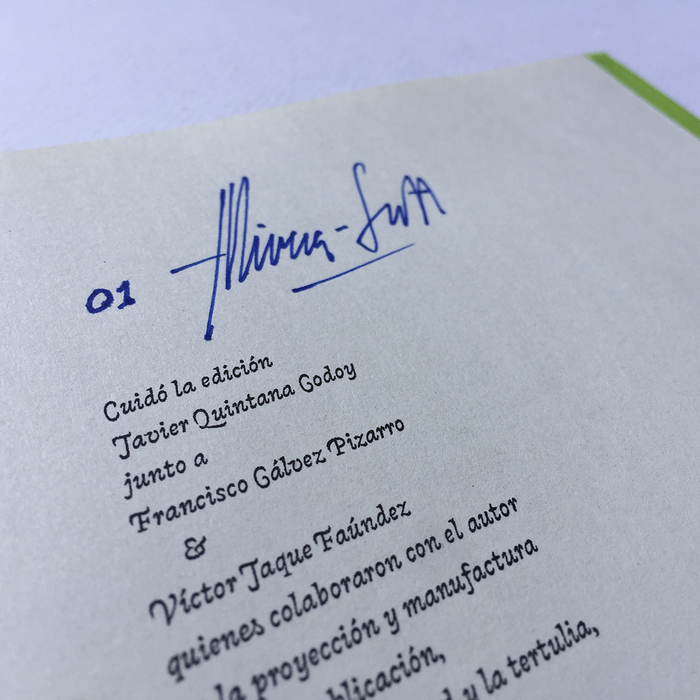 01
Cuidó la edición
Javier Quintana Godoy
junto a
Francisco Gálvez Pizarro
&
Víctor Jaque Faúndez
quienes colaboraron con el autor
la proyección y manufactura
y la tertulia,